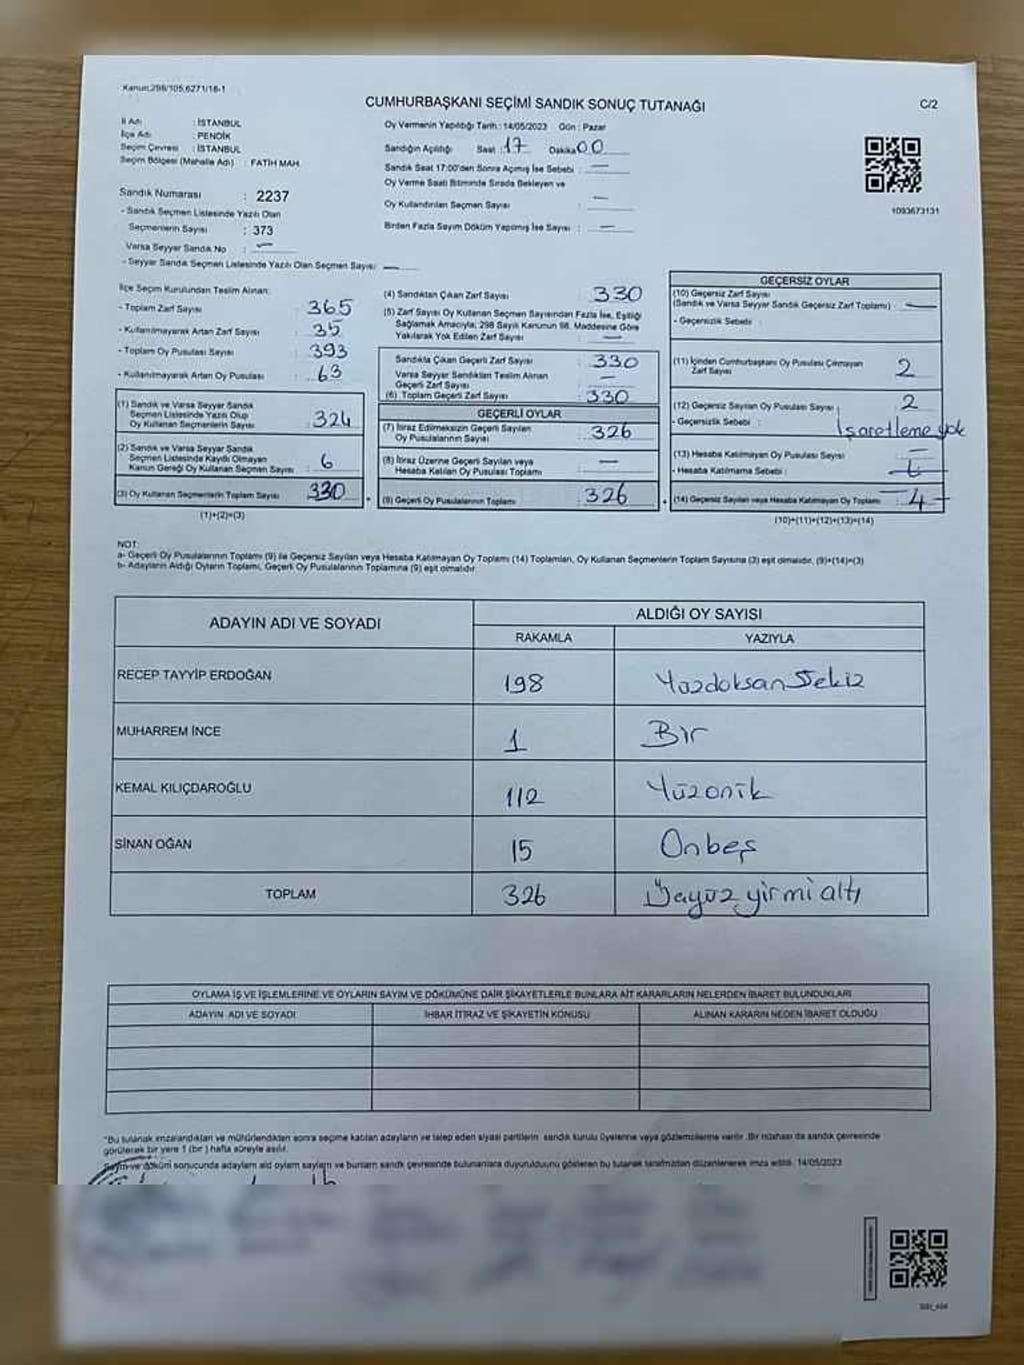 Kanun:298/105,6271/18-1
CUMHURBAŞKANI SEÇİMİ SANDIK SONUÇ TUTANAĞI
C/2
İl Adı : İSTANBUL
İlçe Adı : PENDİK
Seçim Çevresi : İSTANBUL
Seçim Bölgesi (Mahalle Adı) : FATİH MAH.
Sandık Numarası : 2237
- Sandık Seçmen Listesinde Yazılı Olan
Seçmenlerin Sayısı : 373
Varsa Seyyar Sandık No : —
- Seyyar Sandık Seçmen Listesinde Yazılı Olan Seçmen Sayısı : —
Oy Vermenin Yapıldığı Tarih : 14/05/2023 Gün : Pazar
Sandığın Açıldığı Saat : 17 Dakika 00
Sandık Saat 17:00'den Sonra Açımış İse Sebebi : —
Oy Verme Saati Bitiminde Sırada Bekleyen ve
Oy Kullandırılan Seçmen Sayısı : —
Birden Fazla Sayım Döküm Yapılmış İse Sayısı : —
1093673131
İlçe Seçim Kurulundan Teslim Alınan:
- Toplam Zarf Sayısı : 365
- Kullanılmayarak Artan Zarf Sayısı : 35
- Toplam Oy Pusulası Sayısı : 393
- Kullanılmayarak Artan Oy Pusulası : 63
(1) Sandık ve Varsa Seyyar Sandık
Seçmen Listesinde Yazılı Olup
Oy Kullanan Seçmenlerin Sayısı : 324
(2) Sandık ve Varsa Seyyar Sandık
Seçmen Listesinde Kaydı Olmayan
Kanun Gereği Oy Kullanan Seçmen Sayısı : 6
(3) Oy Kullanan Seçmenlerin Toplam Sayısı : 330
(1)+(2)=(3)
(4) Sandıktan Çıkan Zarf Sayısı : 330
(5) Zarf Sayısı Oy Kullanan Seçmen Sayısından Fazla İse, Eşitliği
Sağlamak Amacıyla; 298 Sayılı Kanunun 98. Maddesine Göre
Yakılarak Yok Edilen Zarf Sayısı : —
Sandıkta Çıkan Geçerli Zarf Sayısı : 330
Varsa Seyyar Sandıktan Teslim Alınan
Geçerli Zarf Sayısı : —
(6) Toplam Geçerli Zarf Sayısı : 330
GEÇERLİ OYLAR
(7) İtiraz Edilmeksizin Geçerli Sayılan
Oy Pusulalarının Sayısı : 326
(8) İtiraz Üzerine Geçerli Sayılan veya
Hesaba Katılan Oy Pusulaları Toplamı : —
(9) Geçerli Oy Pusulalarının Toplamı : 326
GEÇERSİZ OYLAR
(10) Geçersiz Zarf Sayısı
(Sandık ve Varsa Seyyar Sandık Geçersiz Zarf Toplamı) : —
- Geçersizlik Sebebi :
(11) İçinden Cumhurbaşkanı Oy Pusulası Çıkmayan
Zarf Sayısı : 2
(12) Geçersiz Sayılan Oy Pusulası Sayısı : 2
- Geçersizlik Sebebi : İşaretleme yok
(13) Hesaba Katılmayan Oy Pusulası Sayısı : —
- Hesaba Katılmama Sebebi :
(14) Geçersiz Sayılan veya Hesaba Katılmayan Oy Toplamı : 4
(10)+(11)+(12)+(13)=(14)
NOT:
a- Geçerli Oy Pusulalarının Toplamı (9) ile Geçersiz Sayılan veya Hesaba Katılmayan Oy Toplamı (14) Toplamları, Oy Kullanan Seçmenlerin Toplam Sayısına (3) eşit olmalıdır, (9)+(14)=(3)
b- Adayların Aldığı Oyların Toplamı, Geçerli Oy Pusulalarının Toplamına (9) eşit olmalıdır.
ADAYIN ADI VE SOYADI
ALDIĞI OY SAYISI
RAKAMLA YAZIYLA
RECEP TAYYİP ERDOĞAN 198 Yüzdoksan Sekiz
MUHARREM İNCE 1 Bir
KEMAL KILIÇDAROĞLU 112 Yüzoniki
SİNAN OĞAN 15 Onbeş
TOPLAM 326 Üçyüz yirmi altı
OYLAMA İŞ VE İŞLEMLERİNE VE OYLARIN SAYIM VE DÖKÜMÜNE DAİR ŞİKAYETLERLE BUNLARA AİT KARARLARIN NELERDEN İBARET BULUNDUKLARI
ADAYIN ADI VE SOYADI İHBAR İTİRAZ VE ŞİKAYETİN KONUSU ALINAN KARARIN NEDEN İBARET OLDUĞU
"Bu tutanak imzalandıktan ve mühürlendikten sonra seçime katılan adayların ve talep eden siyasi partilerin sandık kurulu üyelerine veya gözlemcilerine verilir. Bir nüshası da sandık çevresinde
görülecek bir yere 1 (bir) hafta süreyle asılır.
Sayım ve döküm sonucunda adayların aldığı oyların sayılarını ve bunların sandık çevresinde bulunanlara duyurulduğunu gösteren bu tutanak tarafımızdan düzenlenerek imza edildi. 14/05/2023